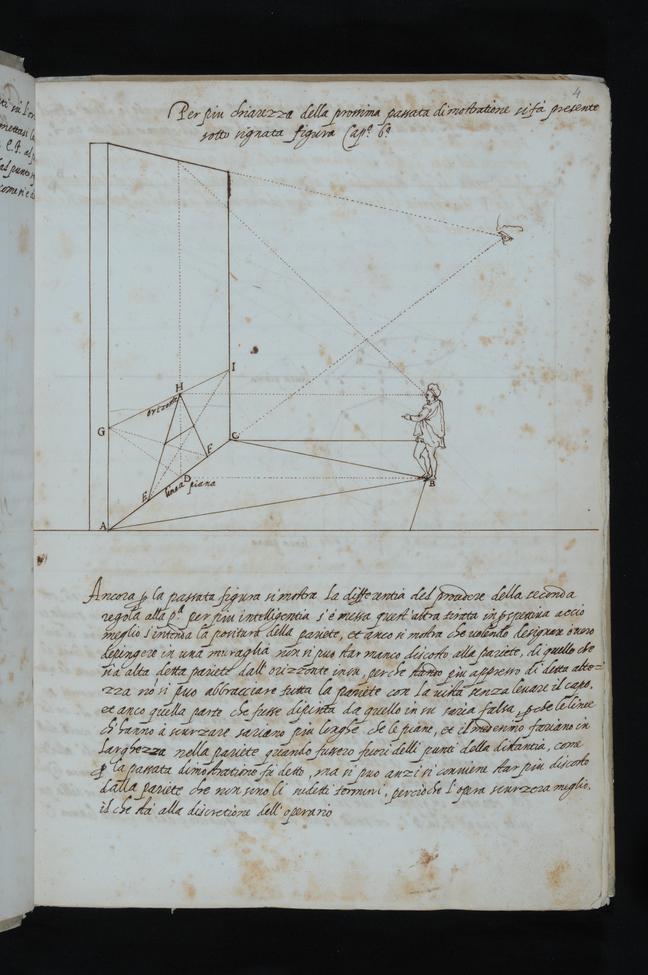 4
Per piu chiarezza della prossima passata dimostratione si fà presente
sotto signata figura Cap.º 6º
I
H
orizonte
G
C
F
D
linea piana
E
B
A
Ancora p la passata figura si mostra la differentia del procedere della seconda
regola alla p.ª per piu intelligentia s'é messa quest'altra tirata in pspettiva acciò
meglio s'intenda la positura della pariete, et anco si mostra che volendo designare ò vero
depingere in una muraglia non si puo star manco discosto alla pariete, di quello che
sia alta detta pariete dall'orizzonte insu, perche stando piu appresso di detta alte=
zza nō si puo abbracciare tutta la pariete con la vista senza levare il capo,
et anco quella parte che fusse dipinta da quello in su saria falsa, pche le linee
ch'hanno à scurzare sariano piu longhe, che le piane, et il medesimo fariano in
larghezza nella pariete quando fussero fuori delli punti della distantia, come
p la passata dimostratione fù detto, ma si puo anzi si conviene star piu discosto
dalla pariete che non sono li sudetti termini, percioche l'opera scurzera meglio,
il che stà alla discretione dell'operario